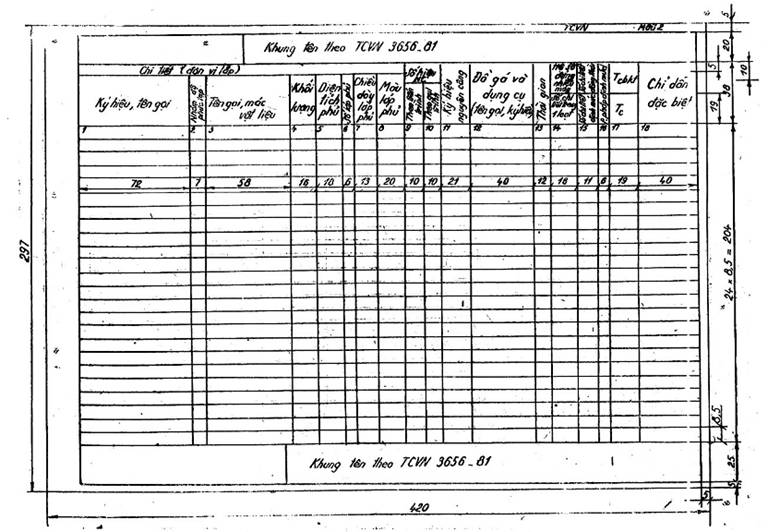 TCVN Mẫu 2
Khung tên theo TCVN 3656_81
Chi tiết (đơn vị lắp)
Ký hiệu, tên gọi
Tên gọi, mác vật liệu
Khối lượng
Diện tích phủ
Chiều dày lớp phủ
Màu lớp phủ
Số hiệu
Ký hiệu nguyên công
Đồ gá và dụng cụ (tên gọi, ký hiệu)
Thời gian
Tcbkt
Tc
Chỉ dẫn đặc biệt
1 2 3 4 5 6 7 8 9 10 11 12 13 14 15 16 17 18
72 7 58 16 10 6 13 20 10 10 21 40 12 18 11 6 19 40
Khung tên theo TCVN 3656_81
297
420
5
20
5
38
10
19
24 x 8,5 = 204
8,5
25
5
5